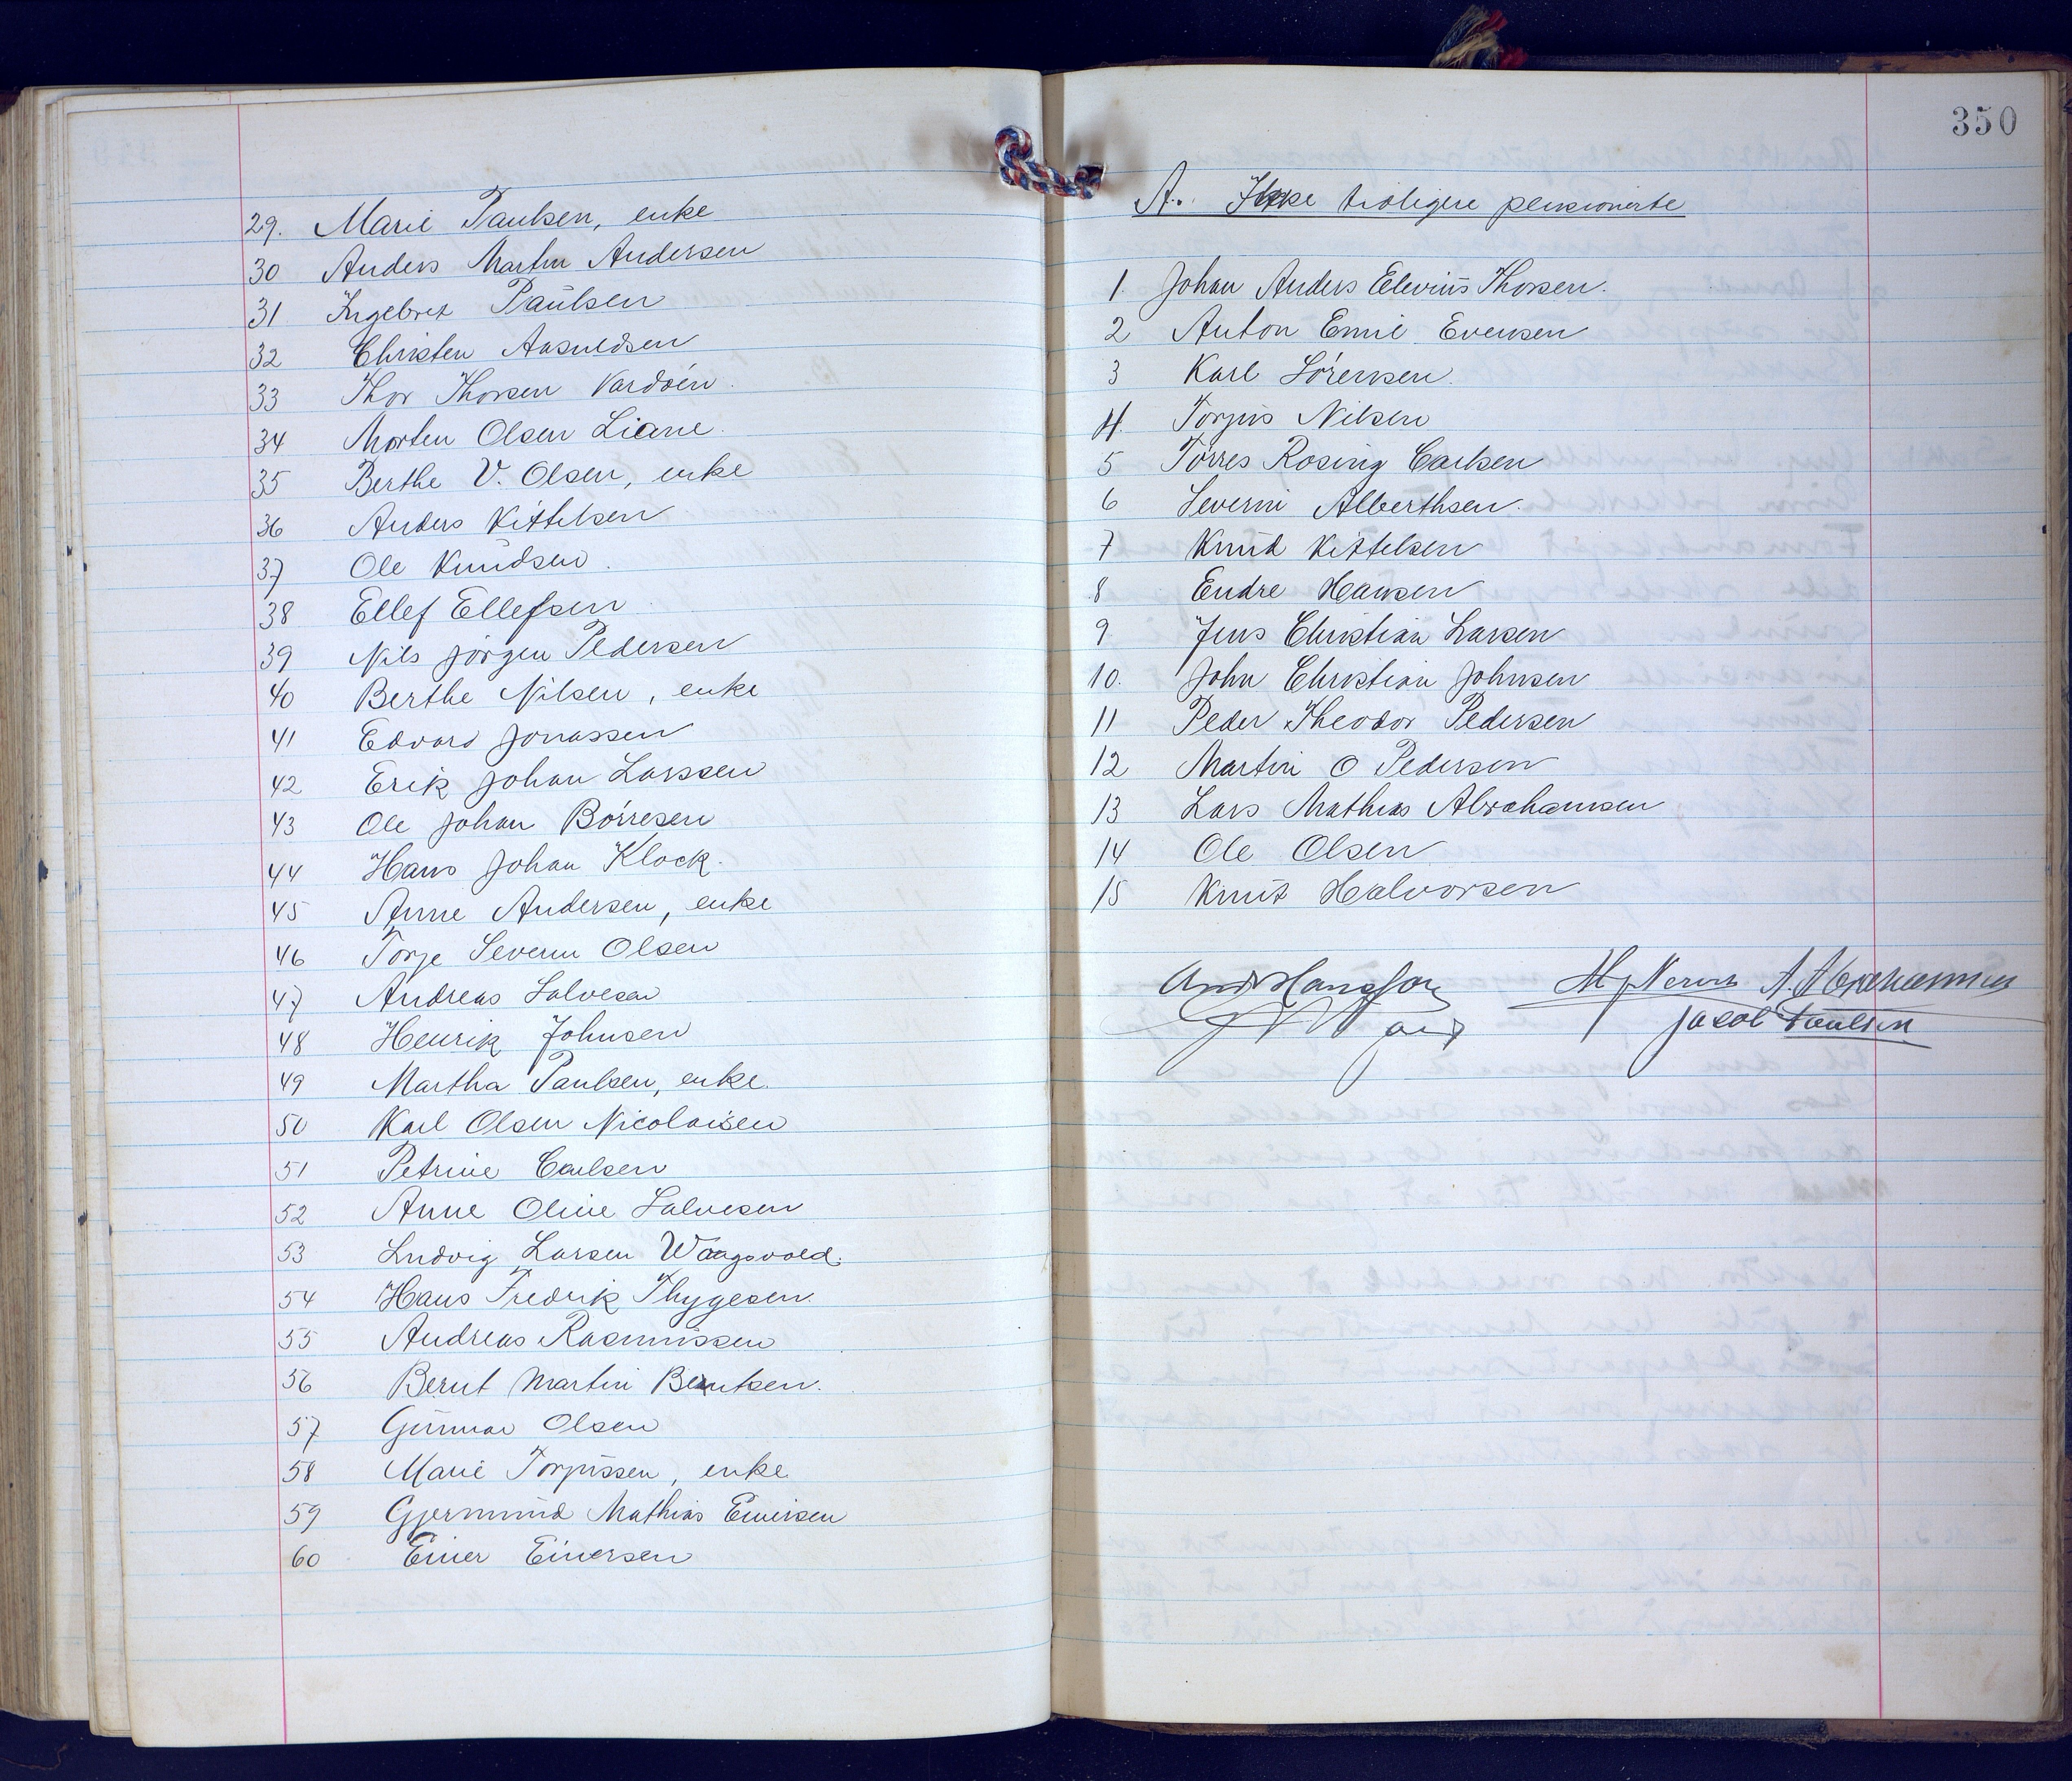 29. Marie Paulsen, enke
30 Anders Martin Andersen
31 Ingebret Paulsen
32 Christen Aasuldsen
33 Thor Thorsen Vardøen.
34 Morten Olsen Liane.
35 Berthe V. Olsen, enke
36 Anders Kittelsen
37 Ole Knudsen.
38 Ellef Ellefsen
39 Nils Jörgen Pedersen
40 Berthe Nilsen, enke
41 Edvard Jonassen
42 Erik Johan Larssen
43 Ole Johan Börresen
44 Hans Johan Klock.
45 Anne Andersen, enke
46 Torje Severin Olsen
47 Andreas Salvesen
48 Henrik Johnsen
49 Martha Paulsen, enke.
50 Karl Olsen Nicolaisen
51 Petrine Carlsen
52 Anne Oline Salvesen
53 Ludvig Larsen Waagsvold.
54 Hans Fredrik Thygesen.
55 Andreas Rasmussen
56 Bernt Martin Berntsen.
57 Gunnar Olsen
58 Marie Torjussen, enke
59 Gjermund Mathias Einersen
60 Einer Einersen
350
A. Ikke tidligere pensionerte
1. Johan Anders Thorsen.
2 Anton Emil Evensen
3 Karl Sörensen.
4. Torjus Nilsen
5 Torres Rosing Carlsen
6 Severin Alberthsen.
7 Knud Kittelsen
8 Endre Hansen
9 Jens Christian Larsen
10. John Christian Johnsen
11 Peder Theodor Pedersen
12 Martin O Pedersen
13 Lars Mathias Abrahamsen
14 Ole Olsen
15 Knut Halvorsen
Jacob Paulsen